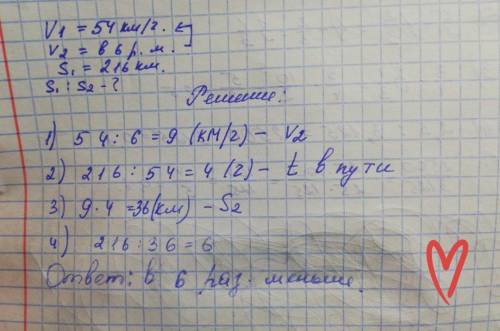 V1 = 54 км/г.
V2 = в 6 р. м.
S1 = 216 км.
S1 : S2 - ?
Решение:
1) 54 : 6 = 9 (км/г) - V2
2) 216 : 54 = 4 (г) - t в пути
3) 9 · 4 = 36 (км) - S2
4) 216 : 36 = 6
Ответ: в 6 раз. меньше.